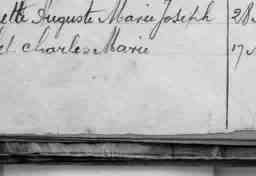 ette Auguste Marie Joseph 28
el Charles Marie 17